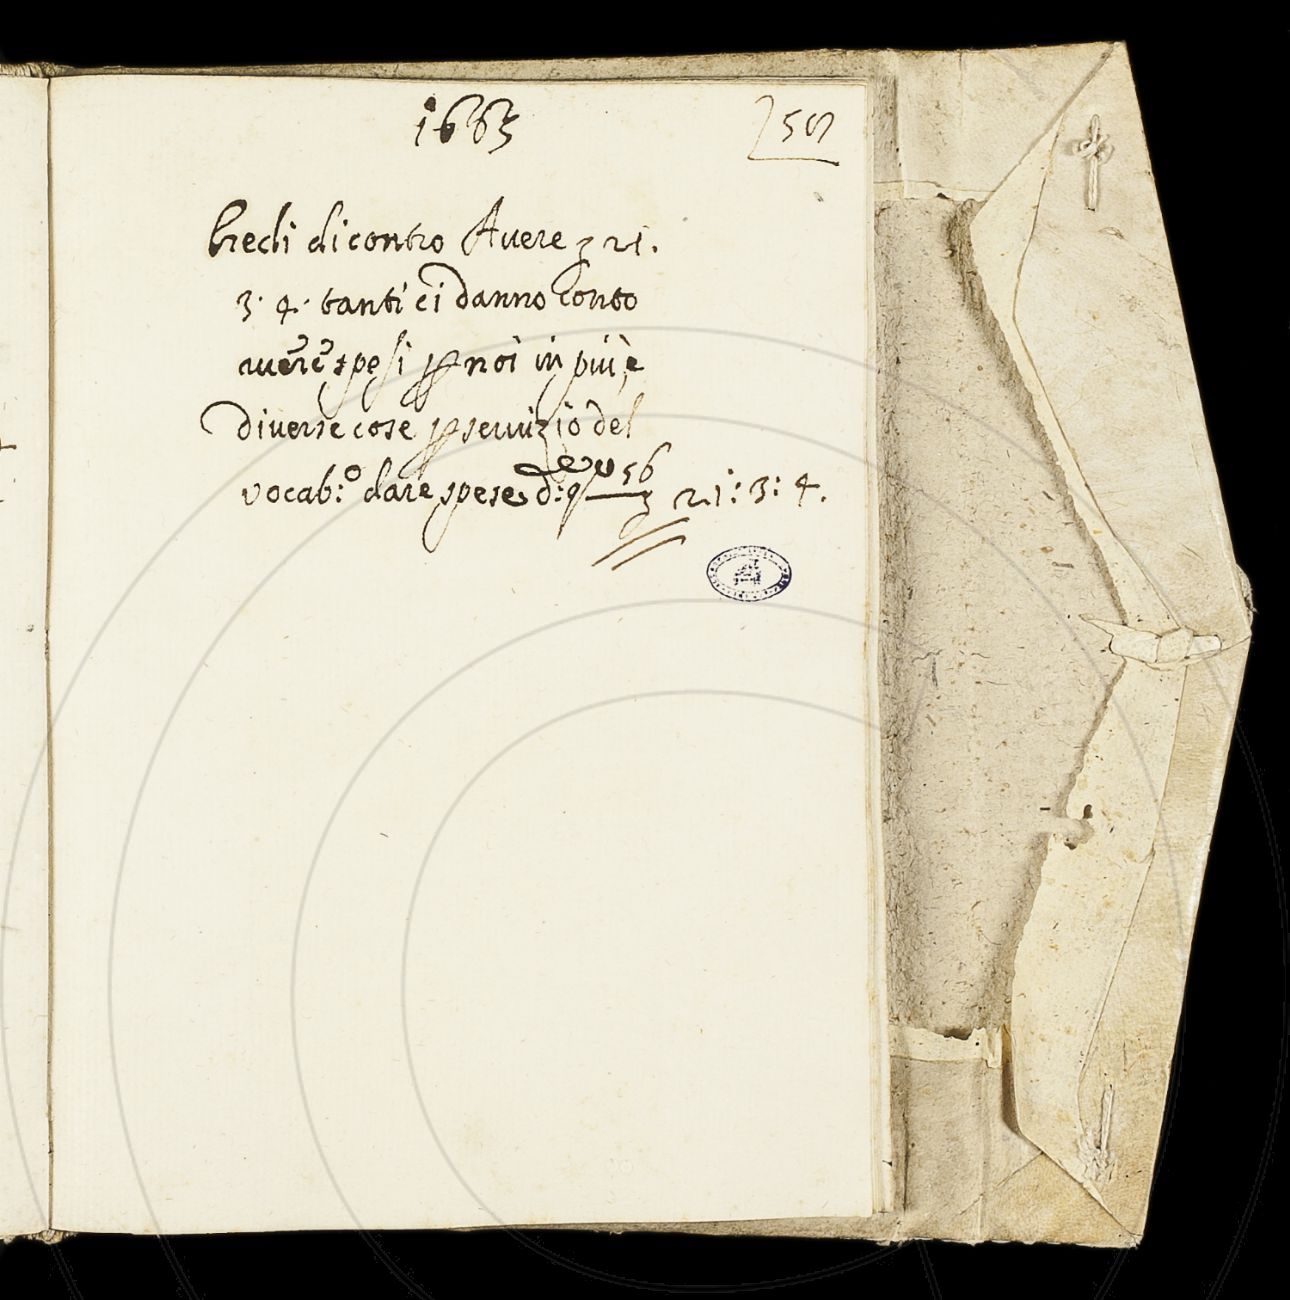 1663
50
hredi di contro Avere ʒ 21.
3. 4. tanti ci danno conto
avere spesi ꝑ noi in più, e
Diverse cose ꝑ servizio del
vocab:º dare spese d: q 56 ʒ 21: 3: 4.